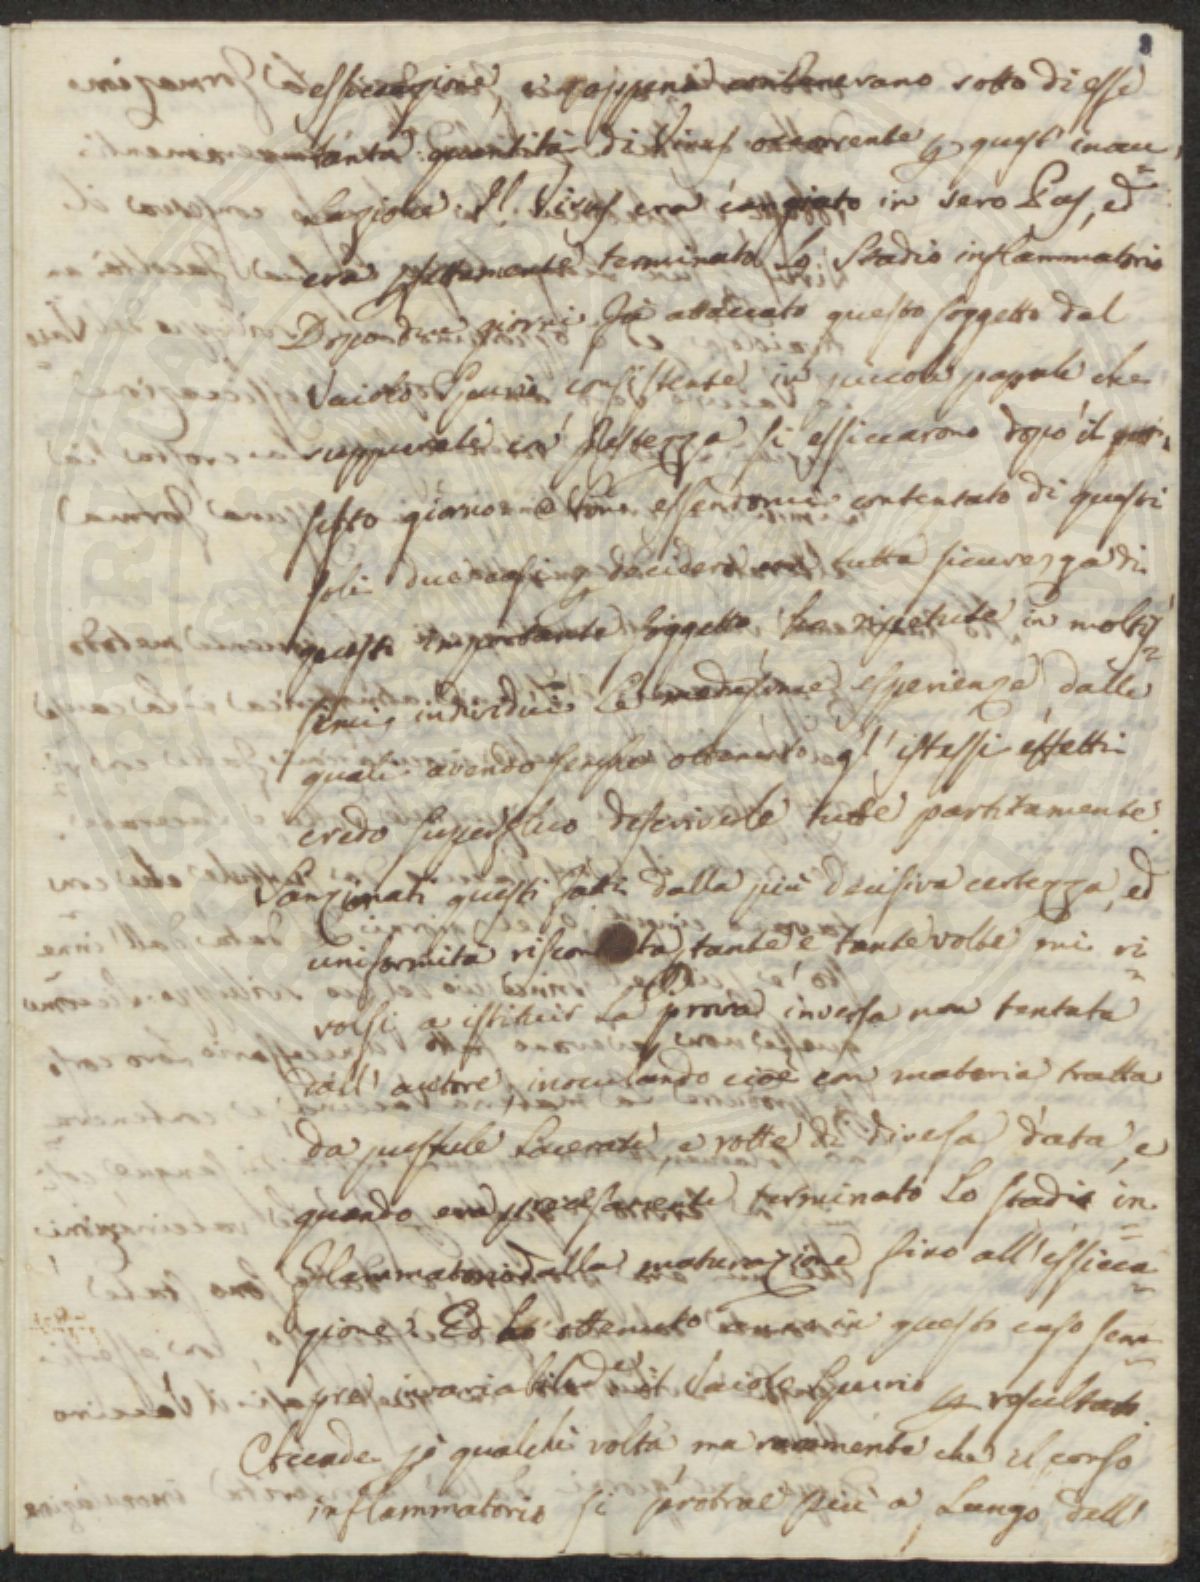 essiccazione, e appena contenevano sotto di esse
tanta quantità di Virus occorrente p quest' inocu,
lazione. Il Virus era cangiato in sero Pus, ed
era pfettamente terminato Lo Stadio inflammatorio
Dopo due giorni fù attaccato questo soggetto dal
Vaiolo Spurio consistente in piccole papule che
suppurate in si essiccarono dopo il
sesto giorno. Non essendomi contentato di questi
soli due casi p decidere con tutta sicurezza di
questo importante soggetto, ho ripetute in moltis=
simi individui Le medesime esperienze, dalle
quali avendo sempre ottenuto gl' istessi effetti
credo superfluo descriverle tutte partitamente.
Sanzionati questi fatti dalla più decisiva certezza, ed
uniformità riscon ta tante, e tante volte mi ri=
volsi a istituir La prova inversa non tentata
dall' autore, inoculando cioè con materia tratta
da pustule Lacerate, e rotte di diversa data, e
quando era precisamente terminato Lo stadio in=
flammatorio dalla maturazione fino all' essicca=
zione. Ed ho ottenuto anco in questo caso sem=
pre invariabilmente il Vaiolo Spurio p resultato.
Accade sì qualche volta, ma raramente che il corso
inflammatorio si protrae più a Lungo dell'